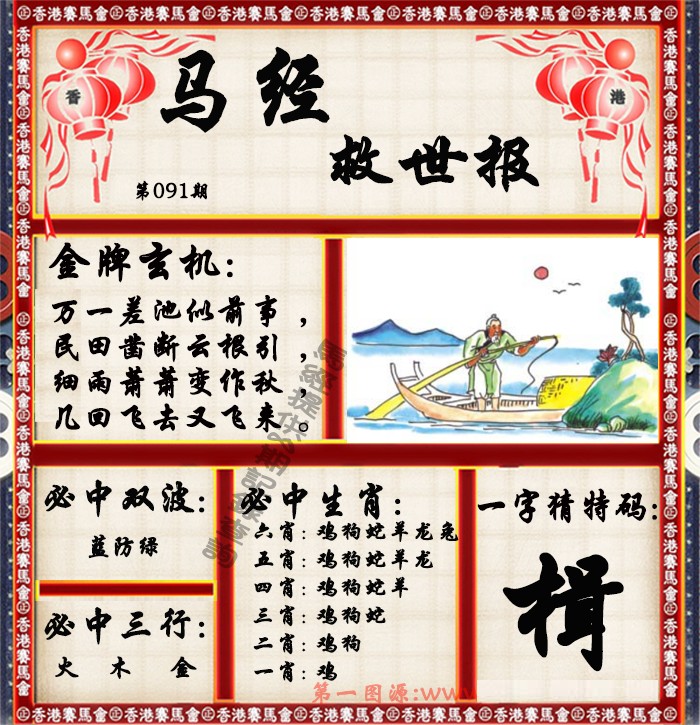 香港賽馬會
香
港
马经
救世报
第091期
金牌玄机:
万一差池似前事，
民田凿断云根引，
细雨萧萧变作秋，
几回飞去又飞来。
必中双波:
蓝防绿
必中三行:
火 木 金
必中生肖:
六肖:鸡狗蛇羊龙兔
五肖:鸡狗蛇羊龙
四肖:鸡狗蛇羊
三肖:鸡狗蛇
二肖:鸡狗
一肖:鸡
一字猜特码:
揖
第一图源:www